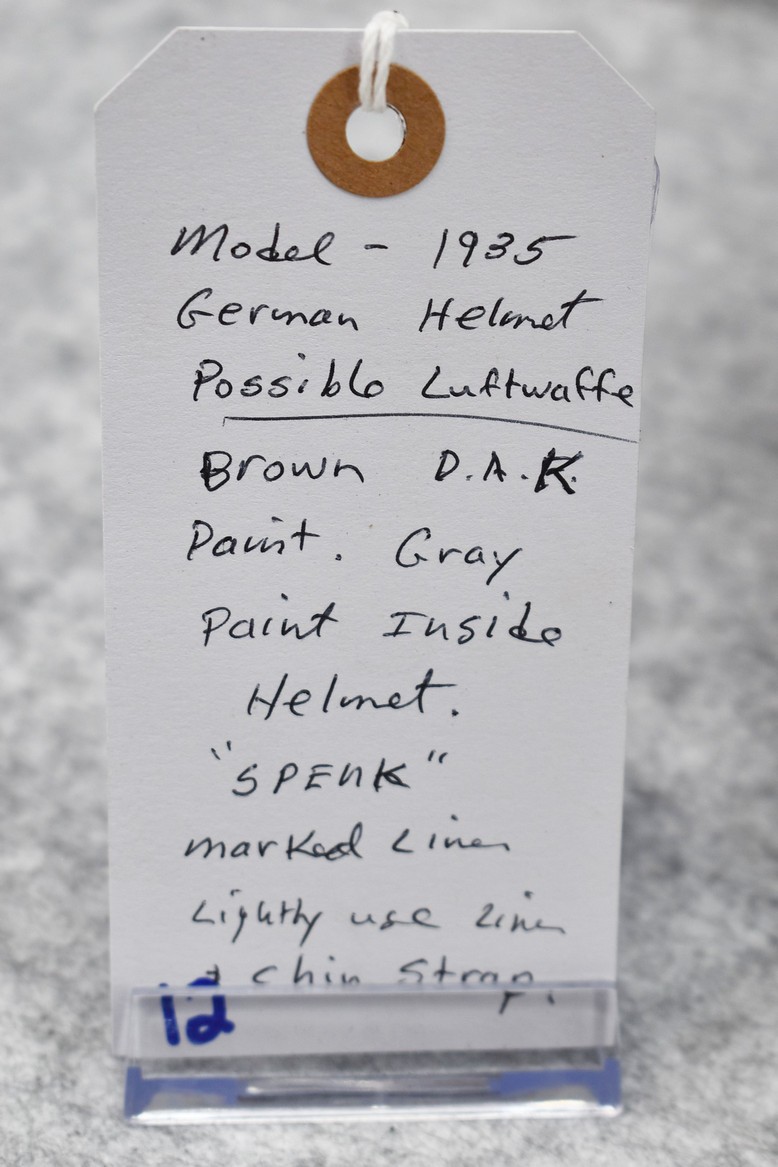 Model - 1935
German Helmet
Possible Luftwaffe
Brown D.A.K.
Paint. Gray
Paint Inside
Helmet.
"SPENK"
marked Liner
Lightly use Liner
+ Chin Strap.
12